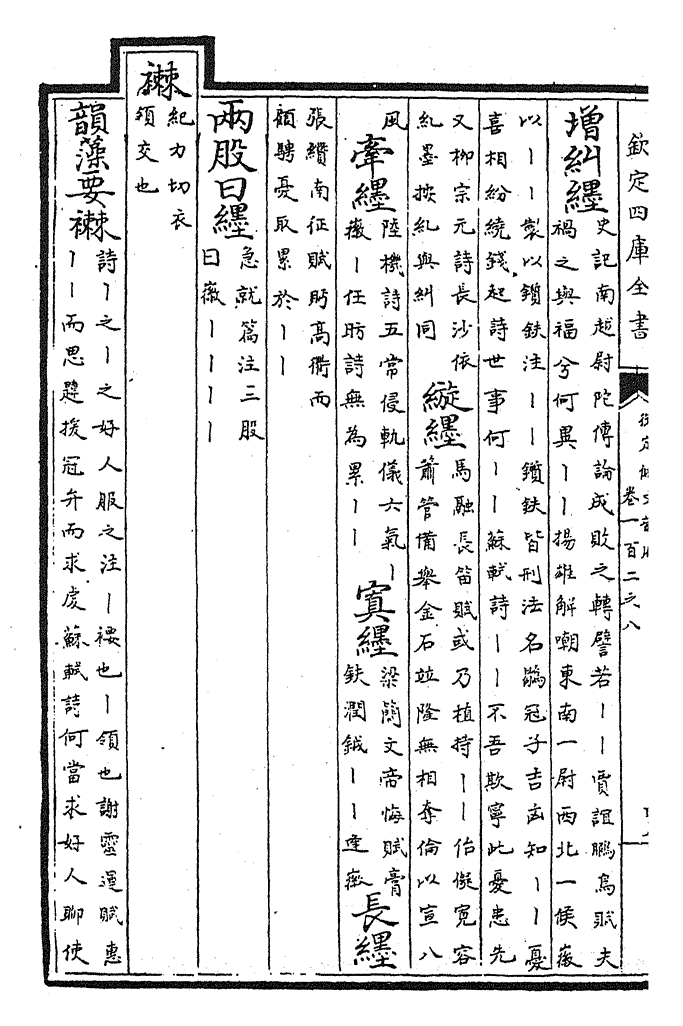 欽定四庫全書
卷一百二之八
增糾纆
史記南越尉陀傳論成敗之轉譬若丨丨賈誼鵩鳥賦夫
禍之與福兮何異丨丨揚雄解嘲東南一尉西北一候徽
以丨丨製以鑕鈇注丨丨鑕鈇皆刑法名鶡冠子吉凶知丨丨憂
喜相紛繞錢起詩世事何丨丨蘇軾詩丨丨不吾欺寧此憂患先
又柳宗元詩長沙依
糺墨按糺與糾同
縼纆
馬融長笛賦或乃植持丨丨佁儗寛容
簫管備舉金石竝隆無相奪倫以宣八
風
牽纆
陸機詩五常侵軌儀六氣丨
徽丨任昉詩無為累丨丨
寘纆
梁簡文帝悔賦膏
鈇潤鉞丨丨逹徽
長纆
張纘南征賦眄高衢而
顧騁憂取累於丨丨
兩股曰纆
急就篇注三股
曰徽丨丨丨丨
襋
紀力切衣
領交也
韻藻要襋
詩丨之丨之好人服之注丨䙅也丨領也謝靈運賦惠
丨丨而思躧援冠弁而求虔蘇軾詩何當求好人聊使